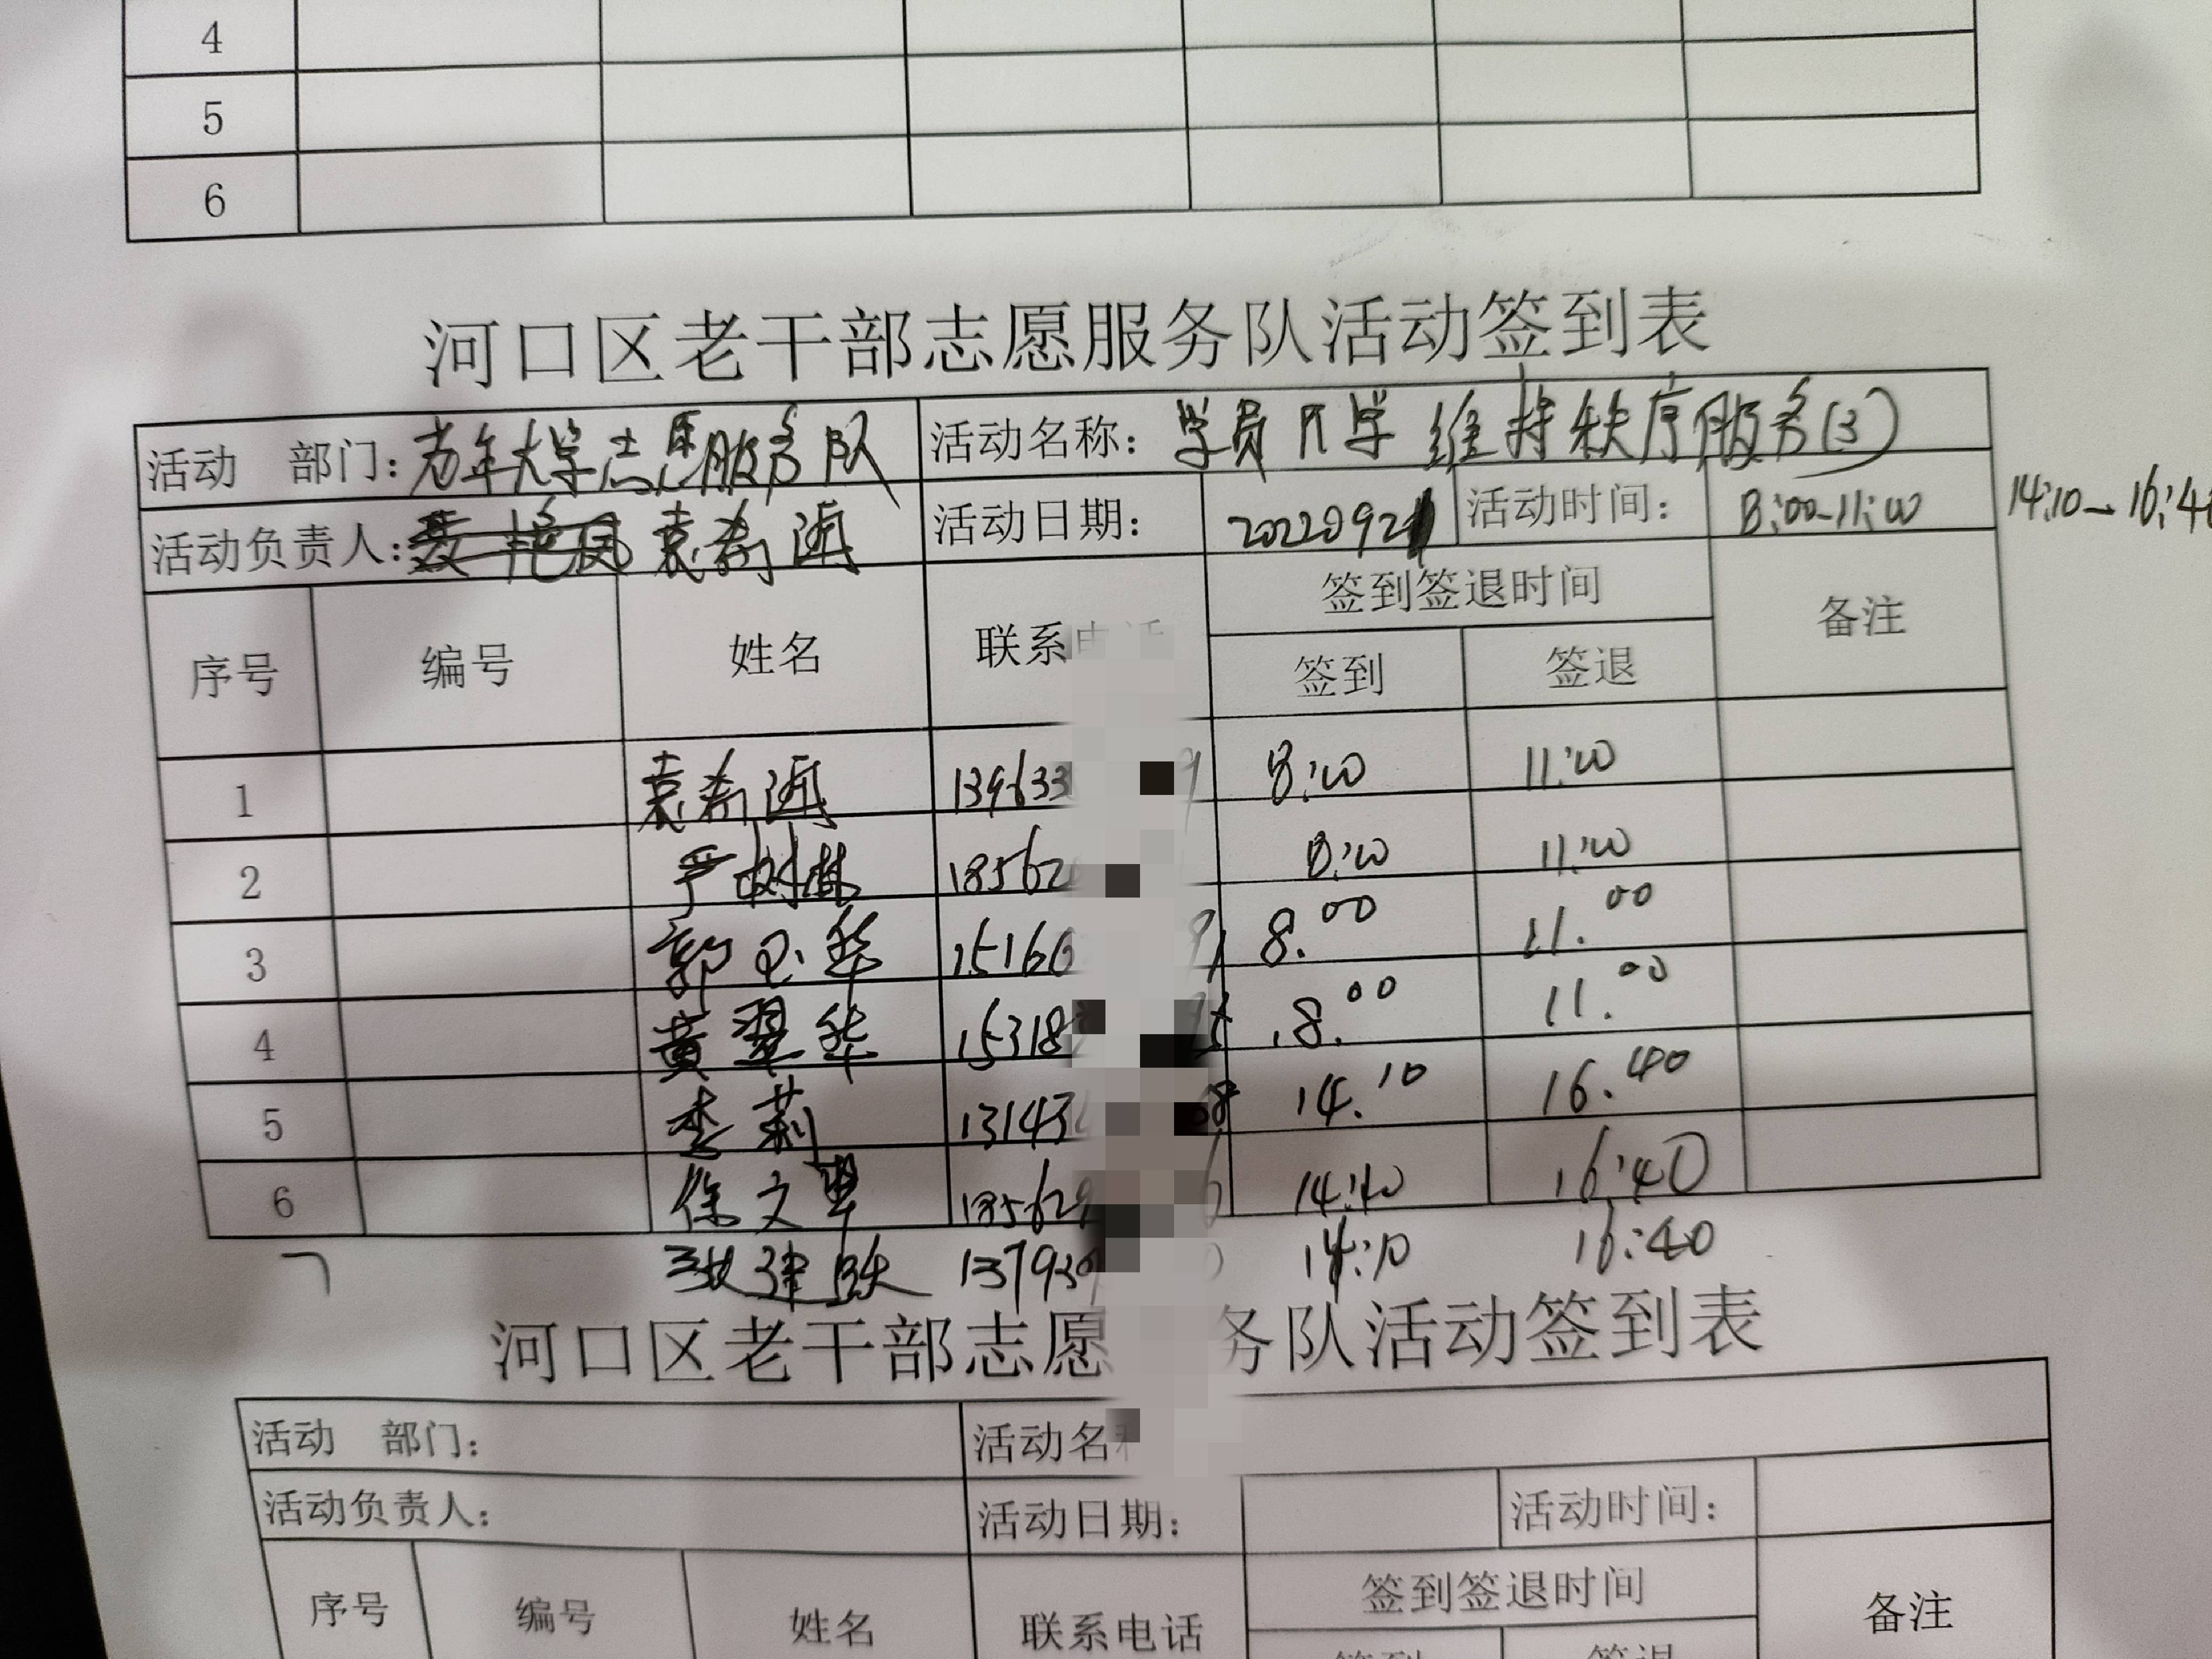 4
5
6
河口区老干部志愿服务队活动签到表
活动 部门：老年大学志愿服务队 活动名称：学员开学维持秩序服务(3)
活动负责人： 袁希 活动日期：2022092 活动时间：8:00-11:00 14:10-16:4
序号 编号 姓名 联系电话 签到签退时间 备注
签到 签退
1 袁希 139633 9 8:00 11:00
2 严树林 18562 8:00 11:00
3 郭玉华 15166 8.00 11.00
4 黄翠华 15318 8.00 11.00
5 李莉 13143 68 14.10 16.40
6 徐文 18562 14:10 16:40
7 建跃 13793 14:10 16:40
河口区老干部志愿 务队活动签到表
活动 部门： 活动名
活动负责人： 活动日期： 活动时间：
序号 编号 姓名 联系电话 签到签退时间 备注
签到 签退